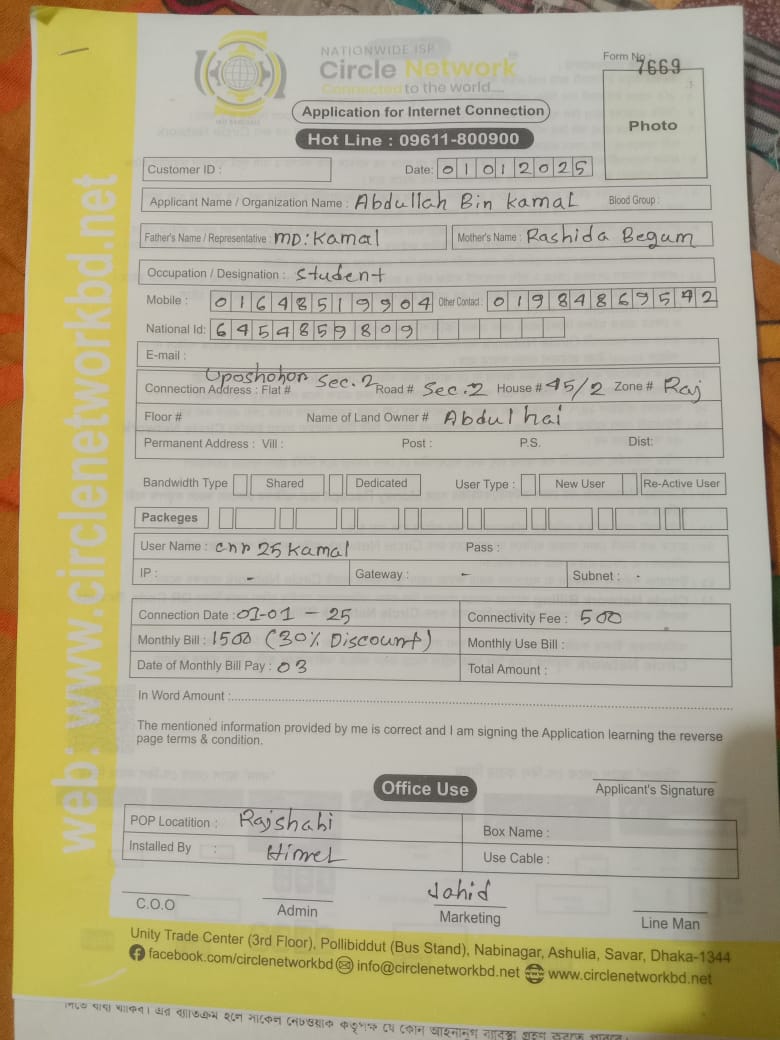 NATIONWIDE ISP
Circle Network
Connected to the world....
Form No : 7669
Application for Internet Connection
Hot Line : 09611-800900
Photo
Customer ID :
Date: 01012025
Applicant Name / Organization Name : Abdullah Bin Kamal Blood Group :
Father's Name / Representative : MD: Kamal Mother's Name : Rashida Begum
Occupation / Designation : Student
Mobile : 01648519904 Other Contact : 01984869542
National Id: 6454859809
E-mail :
Connection Address : Flat # Uposhohor Sec. 2 Road # Sec. 2 House # 45/2 Zone # Raj
Floor # Name of Land Owner # Abdul hai
Permanent Address : Vill : Post : P.S. Dist:
Bandwidth Type Shared Dedicated User Type : New User Re-Active User
Packeges
User Name : cnr25kamal Pass :
IP : - Gateway : - Subnet : -
Connection Date : 01-01-25 Connectivity Fee : 500
Monthly Bill : 1500 (30% Discount) Monthly Use Bill :
Date of Monthly Bill Pay : 03 Total Amount :
In Word Amount :
The mentioned information provided by me is correct and I am signing the Application learning the reverse
page terms & condition.
Applicant's Signature
Office Use
POP Locatition : Rajshahi Box Name :
Installed By : Himel Use Cable :
Jahid
C.O.O Admin Marketing Line Man
Unity Trade Center (3rd Floor), Pollibiddut (Bus Stand), Nabinagar, Ashulia, Savar, Dhaka-1344
facebook.com/circlenetworkbd info@circlenetworkbd.net www.circlenetworkbd.net
web: www.circlenetworkbd.net